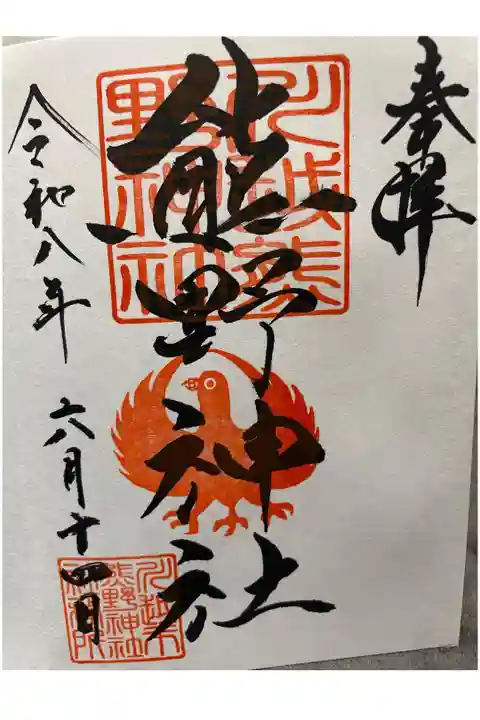 奉拝
川越熊
野神社
熊野神社
令和八年 六月十四日
川越市
熊野神社
社務所